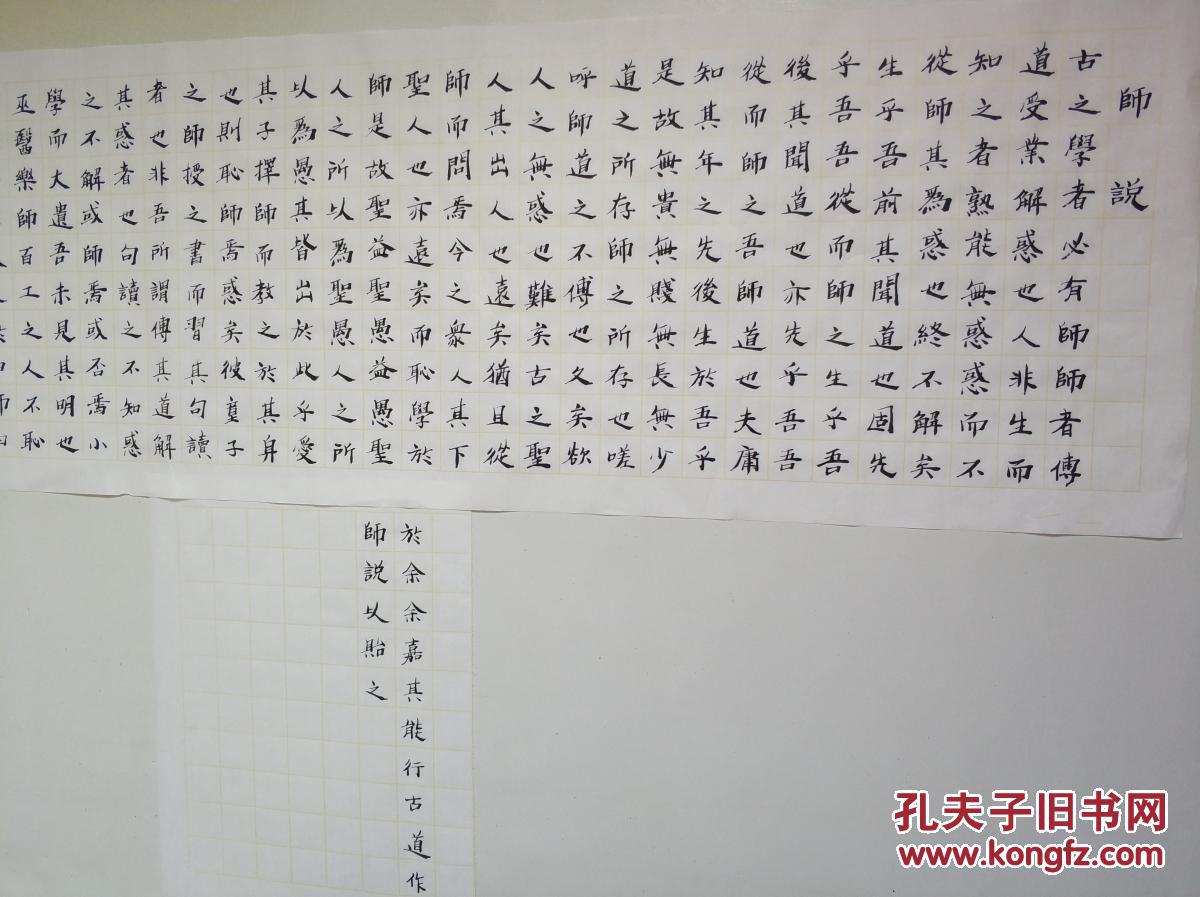 師說
古之學者必有師師者傳
道受業解惑也人非生而
知之者熟能無惑惑而不
從師其為惑也終不解矣
生乎吾前其聞道也固先
乎吾吾從而師之生乎吾
後其聞道也亦先乎吾吾
從而師之吾師道也夫庸
知其年之先後生於吾乎
是故無貴無賤無長無少
道之所存師之所存也嗟
呼師道之不傳也久矣欲
人之無惑也難矣古之聖
人其出人也遠矣猶且從
師而問焉今之衆人其下
聖人也亦遠矣而恥學於
師是故聖益聖愚益愚聖
人之所以為聖愚人之所
以為愚其皆出於此乎愛
其子擇師而教之於其身
也則恥師焉惑矣彼童子
之師授之書而習其句讀
者也非吾所謂傳其道解
其惑者也句讀之不知惑
之不解或師焉或否焉小
學而大遺吾未見其明也
巫醫樂師百工之人不恥
於余余嘉其能行古道作
師說以貽之
孔夫子旧书网
www.kongfz.com